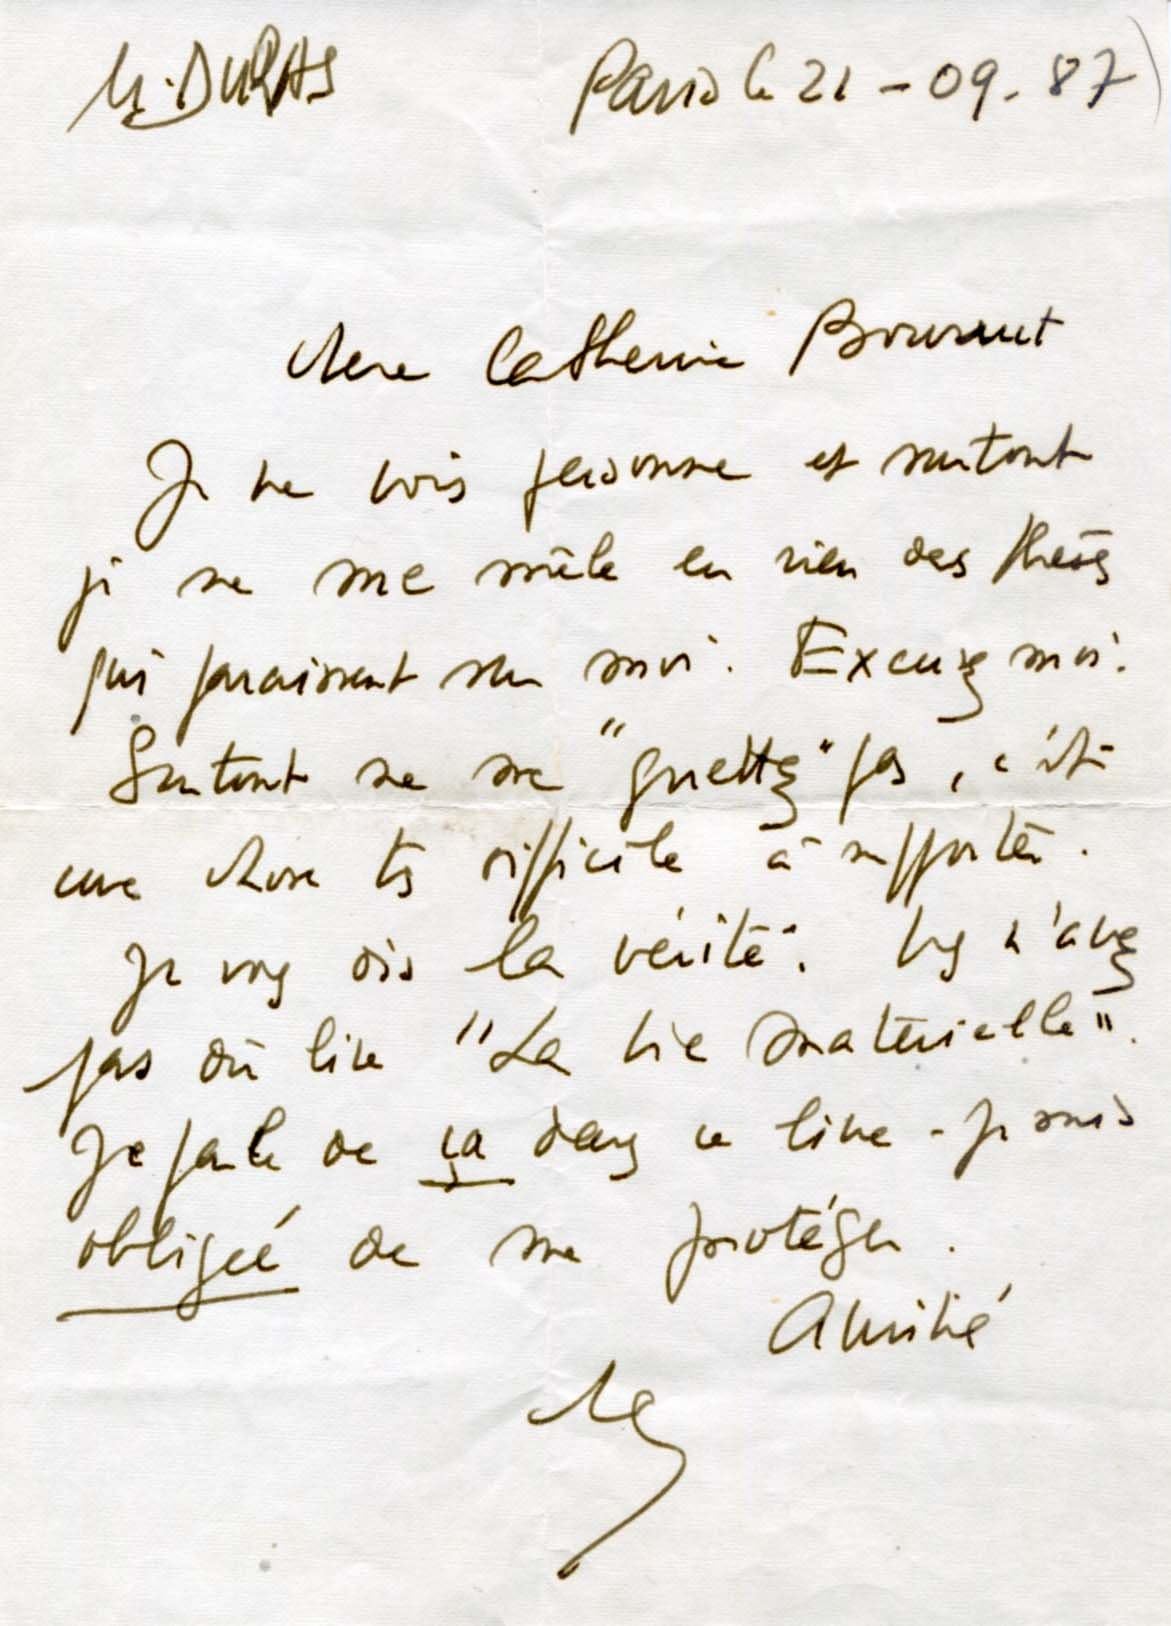 M. DURAS Paris le 21 - 09. 87
Chère Catherine
Je ne vois personne et surtout
je ne me mêle en rien des thèses
qui paraissent sur moi. Excusez moi.
Surtout ne me "guettez" pas, c'est
une chose très difficile à supporter.
Je vous dis la vérité. Vous n'avez
pas dû lire "La vie matérielle".
Je parle de ça dans ce livre - Je suis
obligée de me protéger.
Amitié